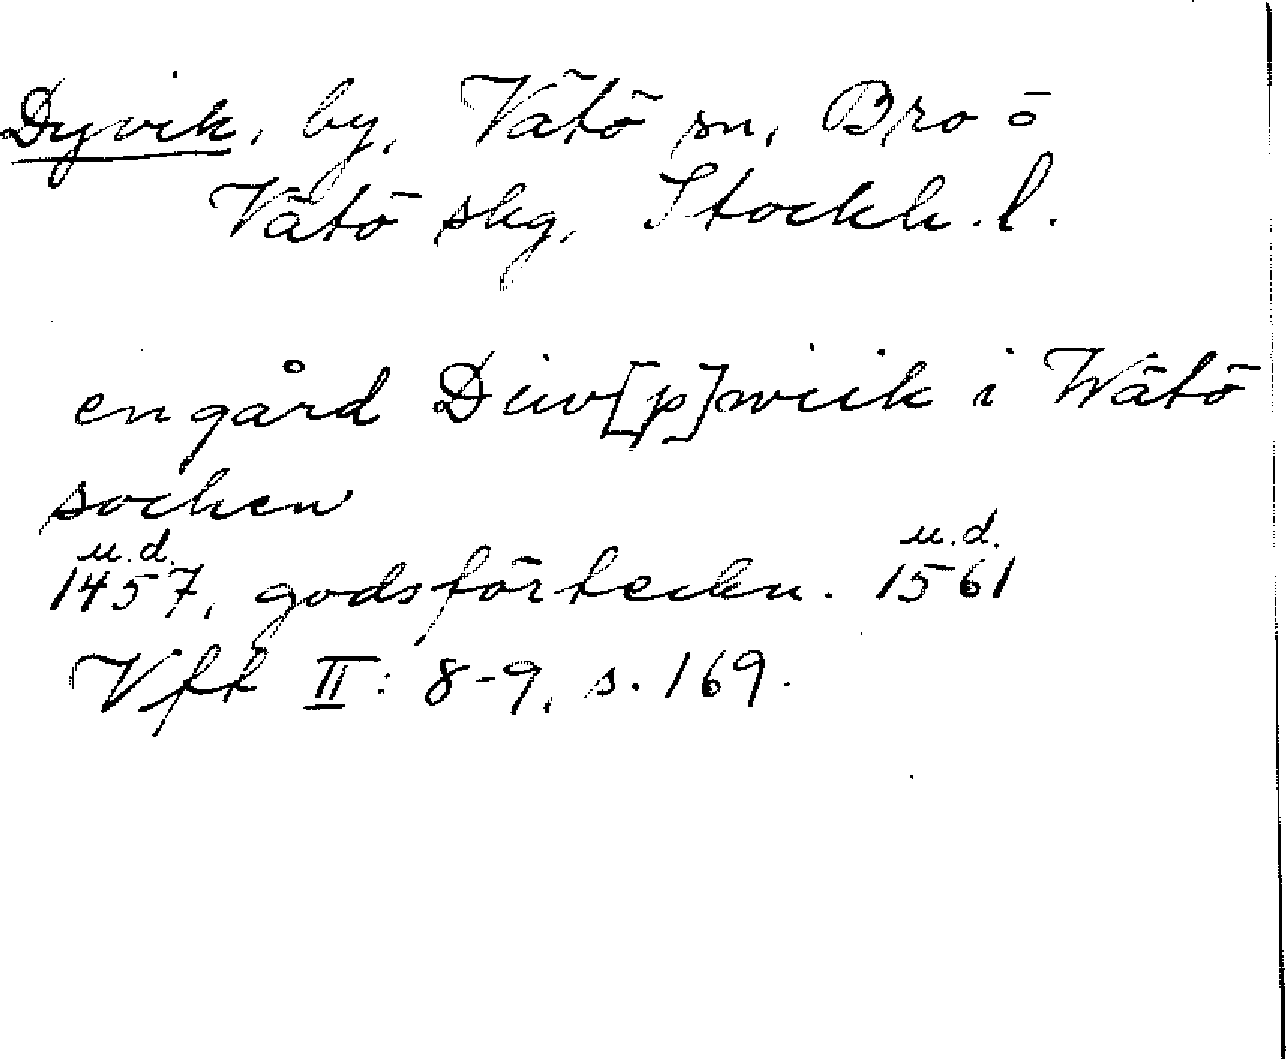 Dyvik, by, Vätö sn, Bro o
Vätö skg, Stockh. l.
en gård Diw[p]wiik i Wätö
socken
u.d. u.d.
1457, godsförteckn. 1561
Vft II: 8-9, s. 169.